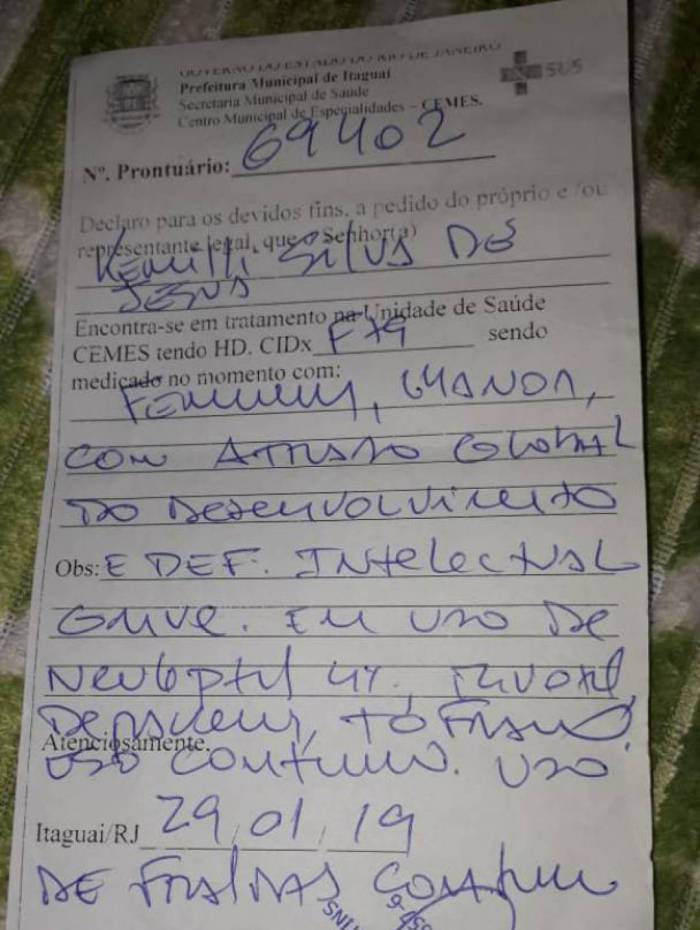 GOVERNO DO ESTADO DO RIO DE JANEIRO
Prefeitura Municipal de Itaguaí
Secretaria Municipal de Saúde
Centro Municipal de Especialidades – CEMES.
SUS
Nº. Prontuário: 69402
Declaro para os devidos fins, a pedido do próprio e /ou
representante legal, que o Senhor(a)
Silva De
Jesus
Encontra-se em tratamento na Unidade de Saúde
CEMES tendo HD. CIDx F79 sendo
medicado no momento com:
com Atraso Global
do Desenvolvimento
Obs: E DEF. Intelectual
Grave. Em uso de
Neuleptil 4%,
Depakene, Tofranil,
Atenciosamente.
uso contínuo. Uso
Itaguai/RJ 29/01/19
de fraldas